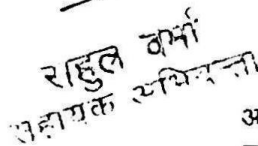 राहुल वर्मा
सहायक अभियन्ता
अ